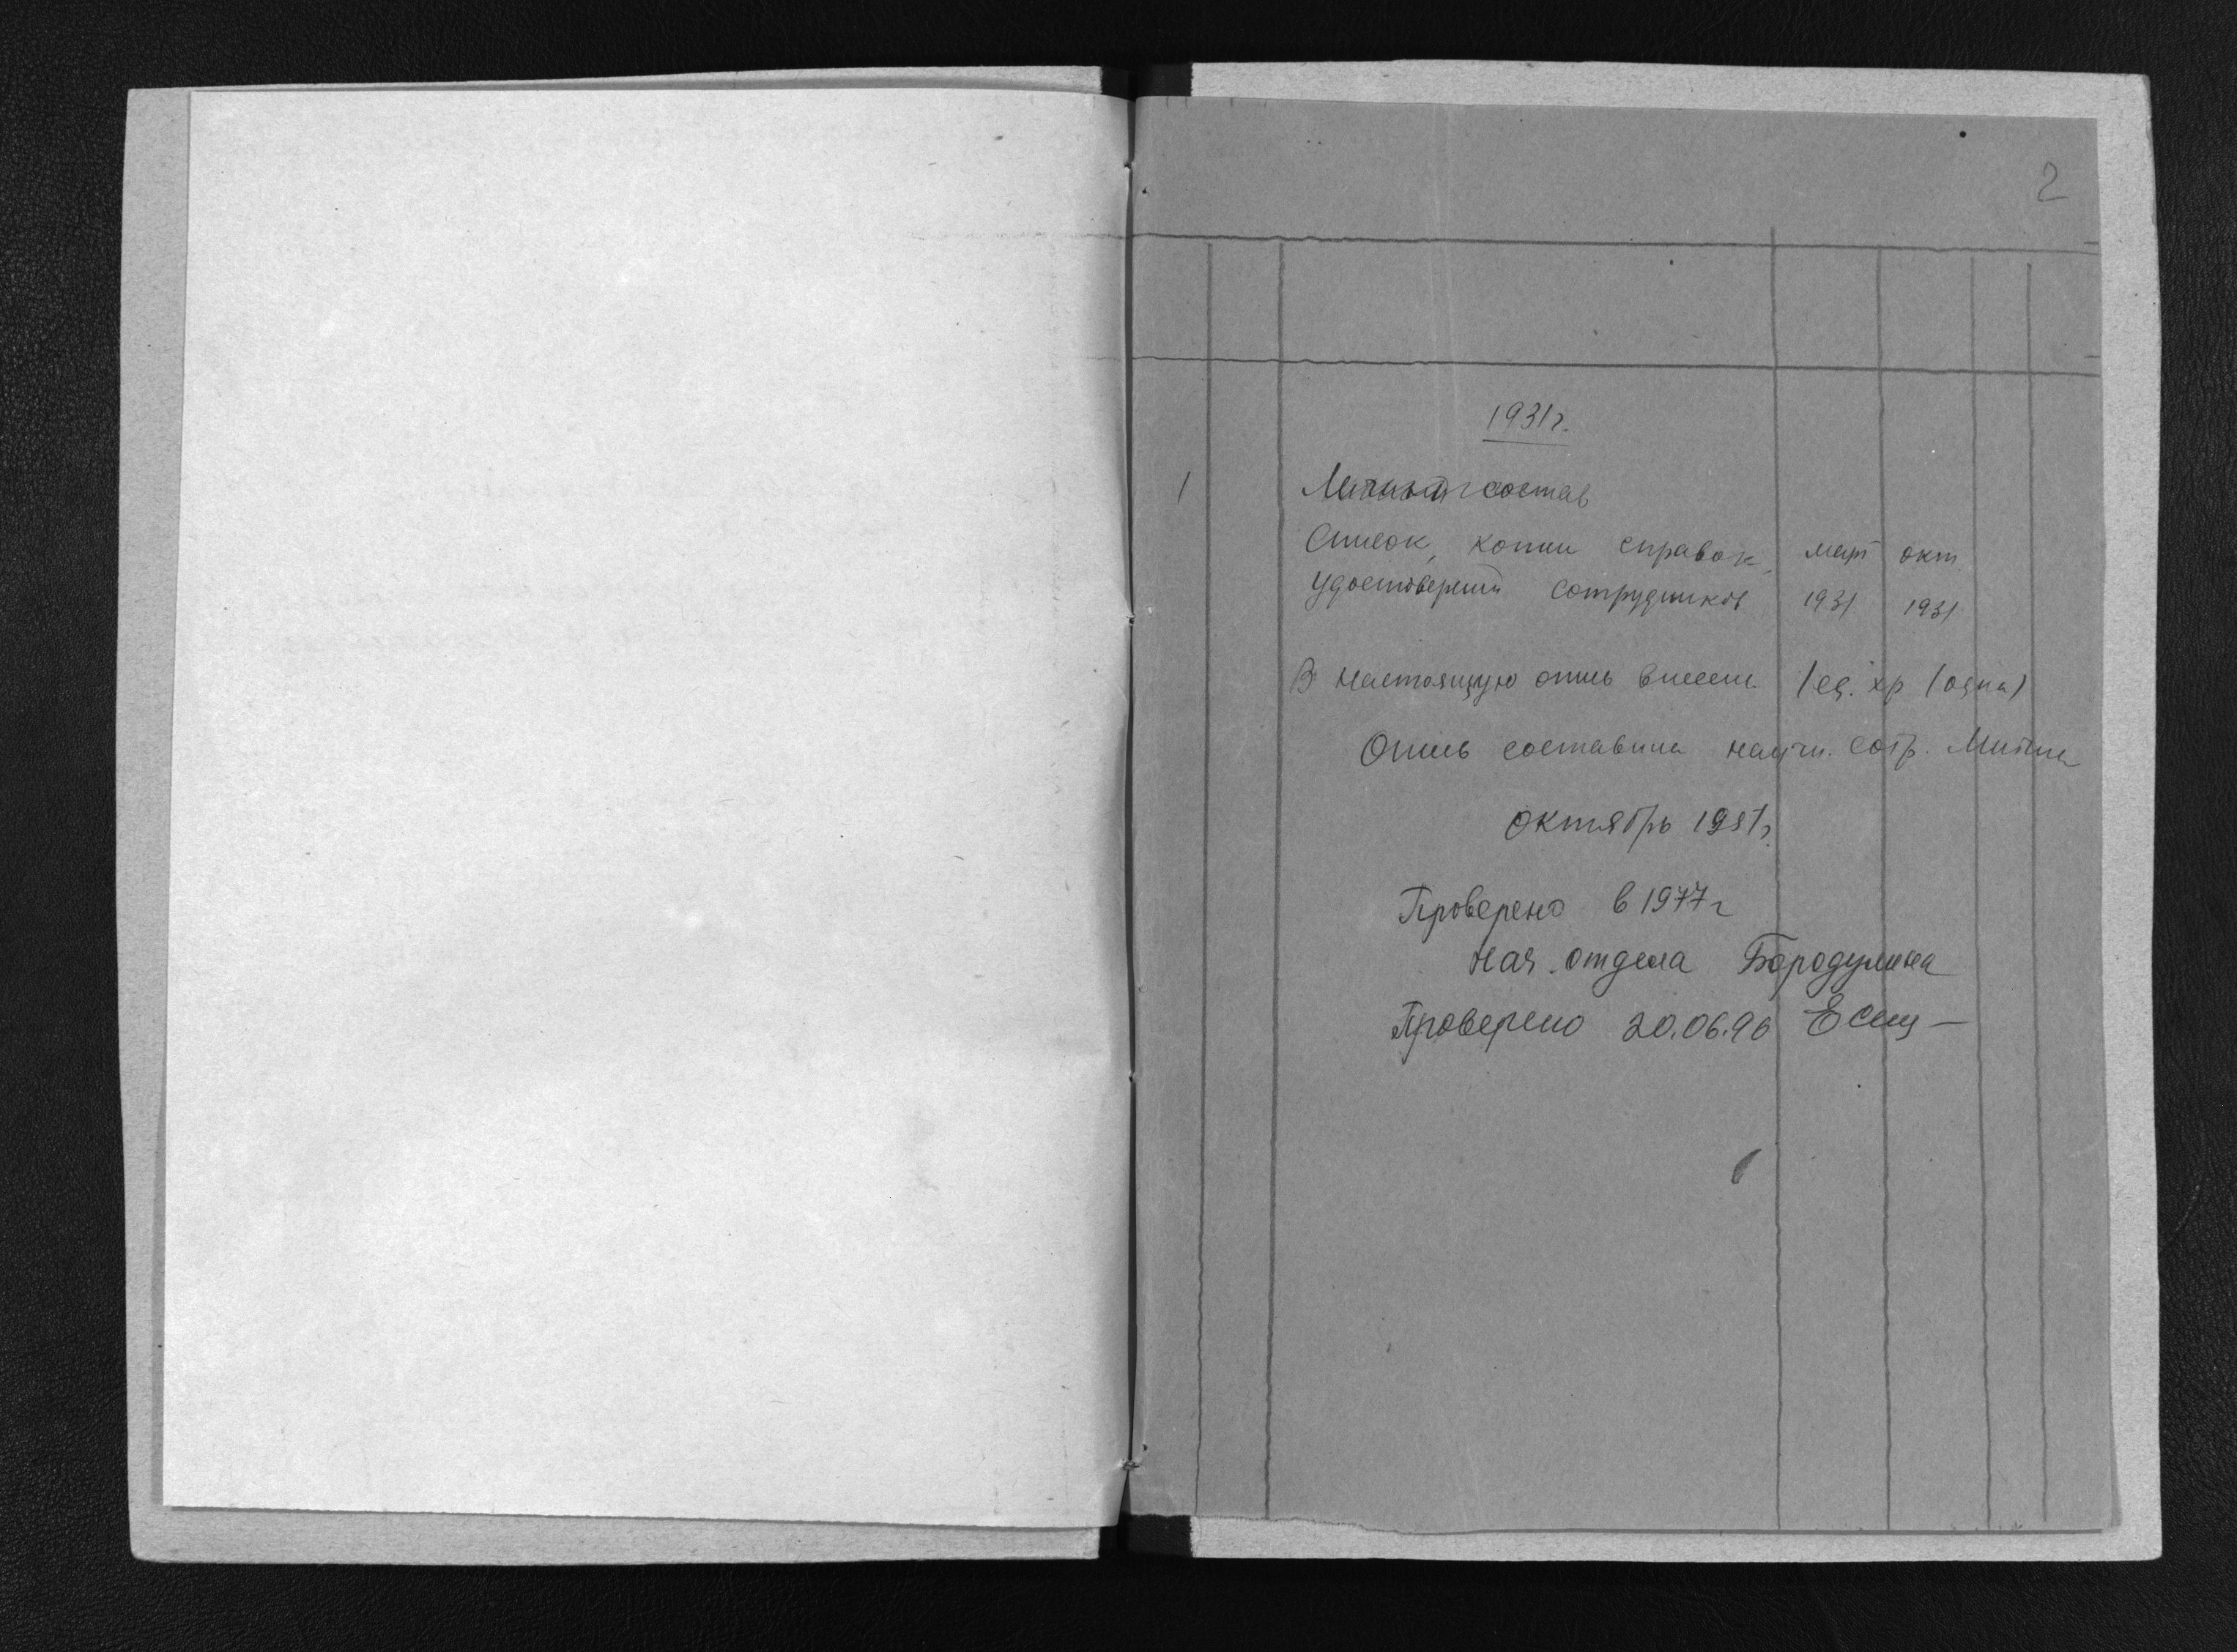 2
1931г.
1 Личный состав
Список, копии справок, март окт.
удостоверений сотрудников 1931 1931
В настоящую опись внесена 1 ед. хр (одна)
Опись составила научн. сотр.
октябрь 1951г.
Проверено в 1977г
нач. отдела Бородулина
Проверено 20.06.96